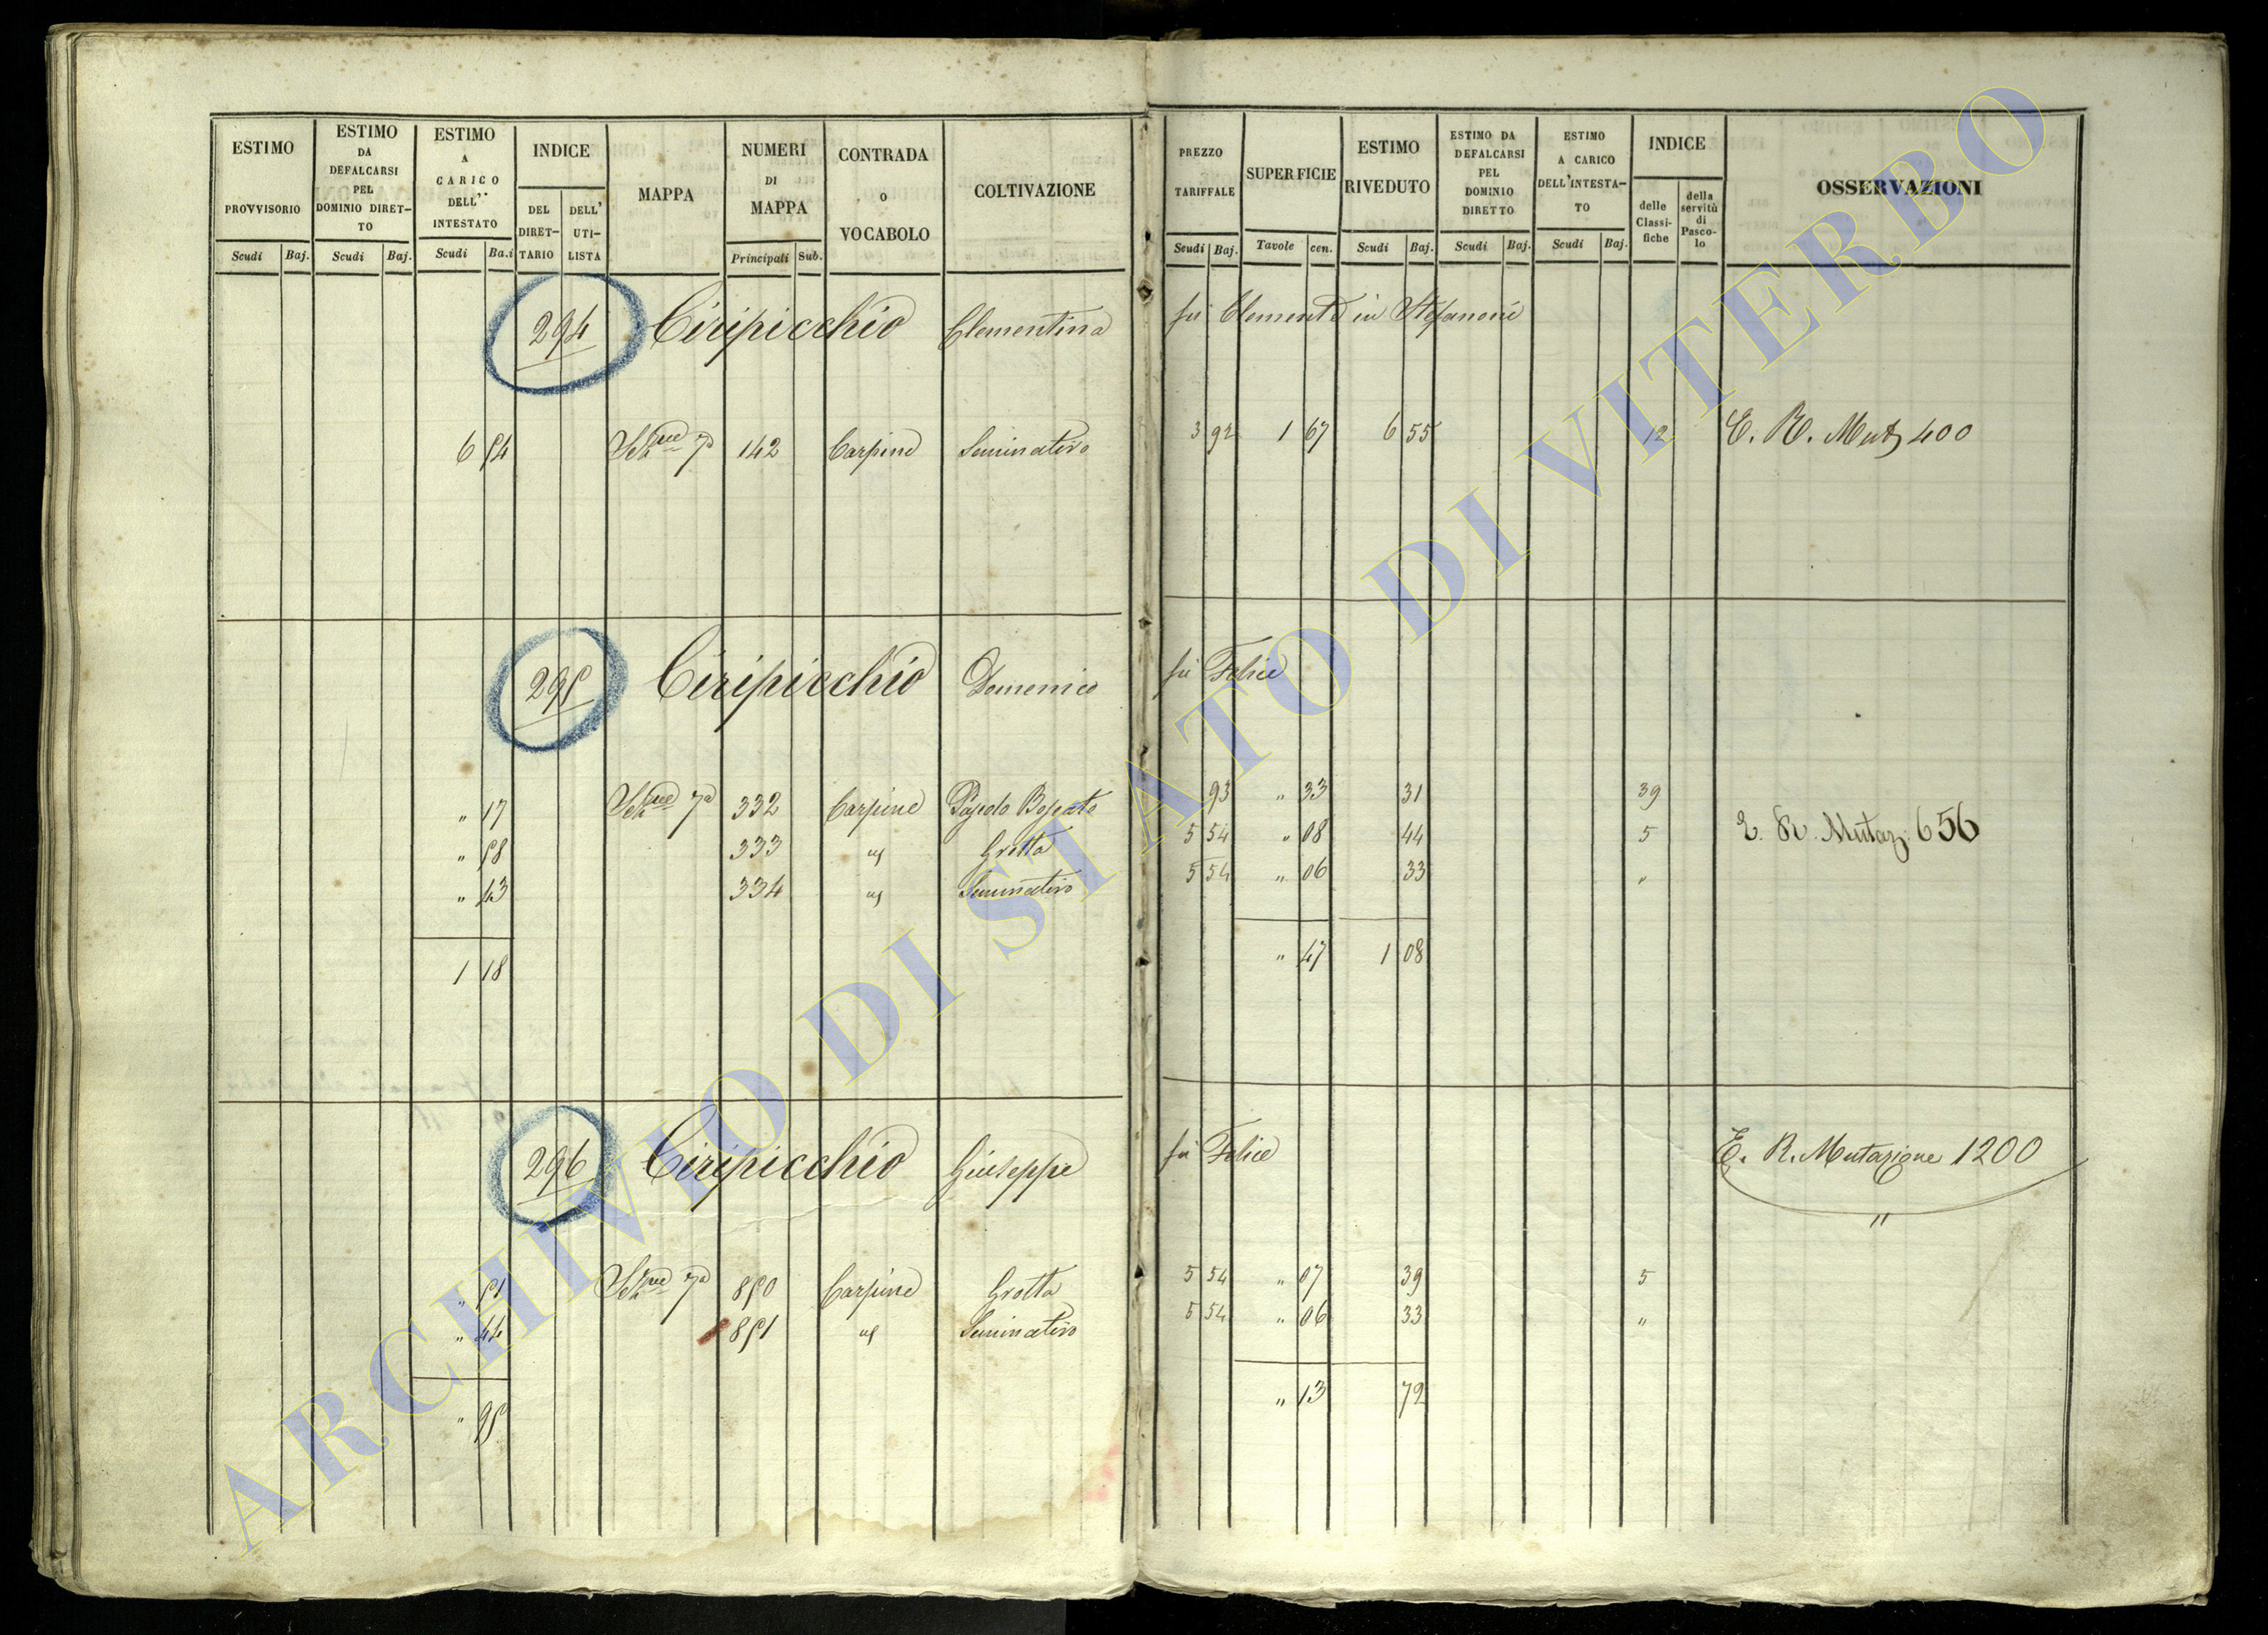 ESTIMO PROVVISORIO
ESTIMO DA DEFALCARSI PEL DOMINIO DIRET-TO
ESTIMO A CARICO DELL' INTESTATO
INDICE
DEL DIRET-TARIO
DELL' UTI-LISTA
MAPPA
NUMERI DI MAPPA
CONTRADA o VOCABOLO
COLTIVAZIONE
PREZZO TARIFFALE
SUPERFICIE
ESTIMO RIVEDUTO
ESTIMO DA DEFALCARSI PEL DOMINIO DIRETTO
ESTIMO A CARICO DELL'INTESTA-TO
INDICE
delle Classi-fiche
della servitù di Pasco-lo
OSSERVAZIONI
Scudi Baj. Scudi Baj. Scudi Ba.i Principali Sub.
Scudi Baj. Tavole cen. Scudi Baj. Scudi Baj. Scudi Baj.
294 Ciripicchio Clementina fu Clemente in Stefanoni
6 54 142 Carpine Seminativo 3 92 1 67 6 55 12 E. R. Mutz 400
295 Ciripicchio Domenico fu Felice
" 17 332 Carpine 93 " 33 31 39
" 58 333 Grotta 5 54 " 08 44 5 E. R. Mutaz. 656
" 43 334 Seminativo 5 54 " 06 33 "
1 18 " 47 1 08
296 Ciripicchio Giuseppe fu Felice E. R. Mutazione 1200
"
" 51 850 Carpine Grotta 5 54 " 07 39 5
" 44 851 Seminativo 5 54 " 06 33 "
" 95 " 13 72
ARCHIVIO DI STATO DI VITERBO